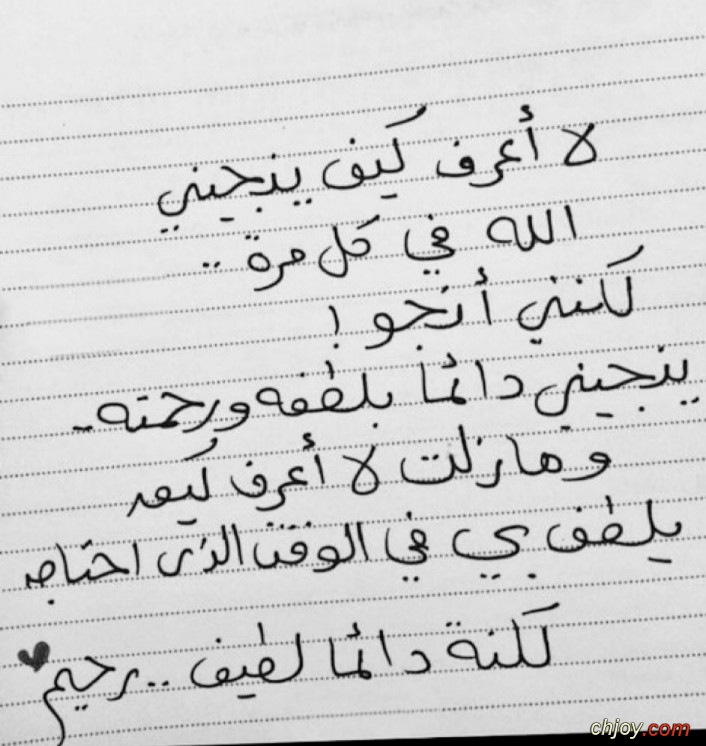 لا أعرف كيف ينجيني
الله في كل مرة ..
لكنني أنجوا !
ينجيني دائما بلطفه ورحمته -
ومازلت لا أعرف كيف
يلطف بي في الوقت الذي احتاجه
لكنة دائما لطيف .. رحيم ♥
chjoy.com